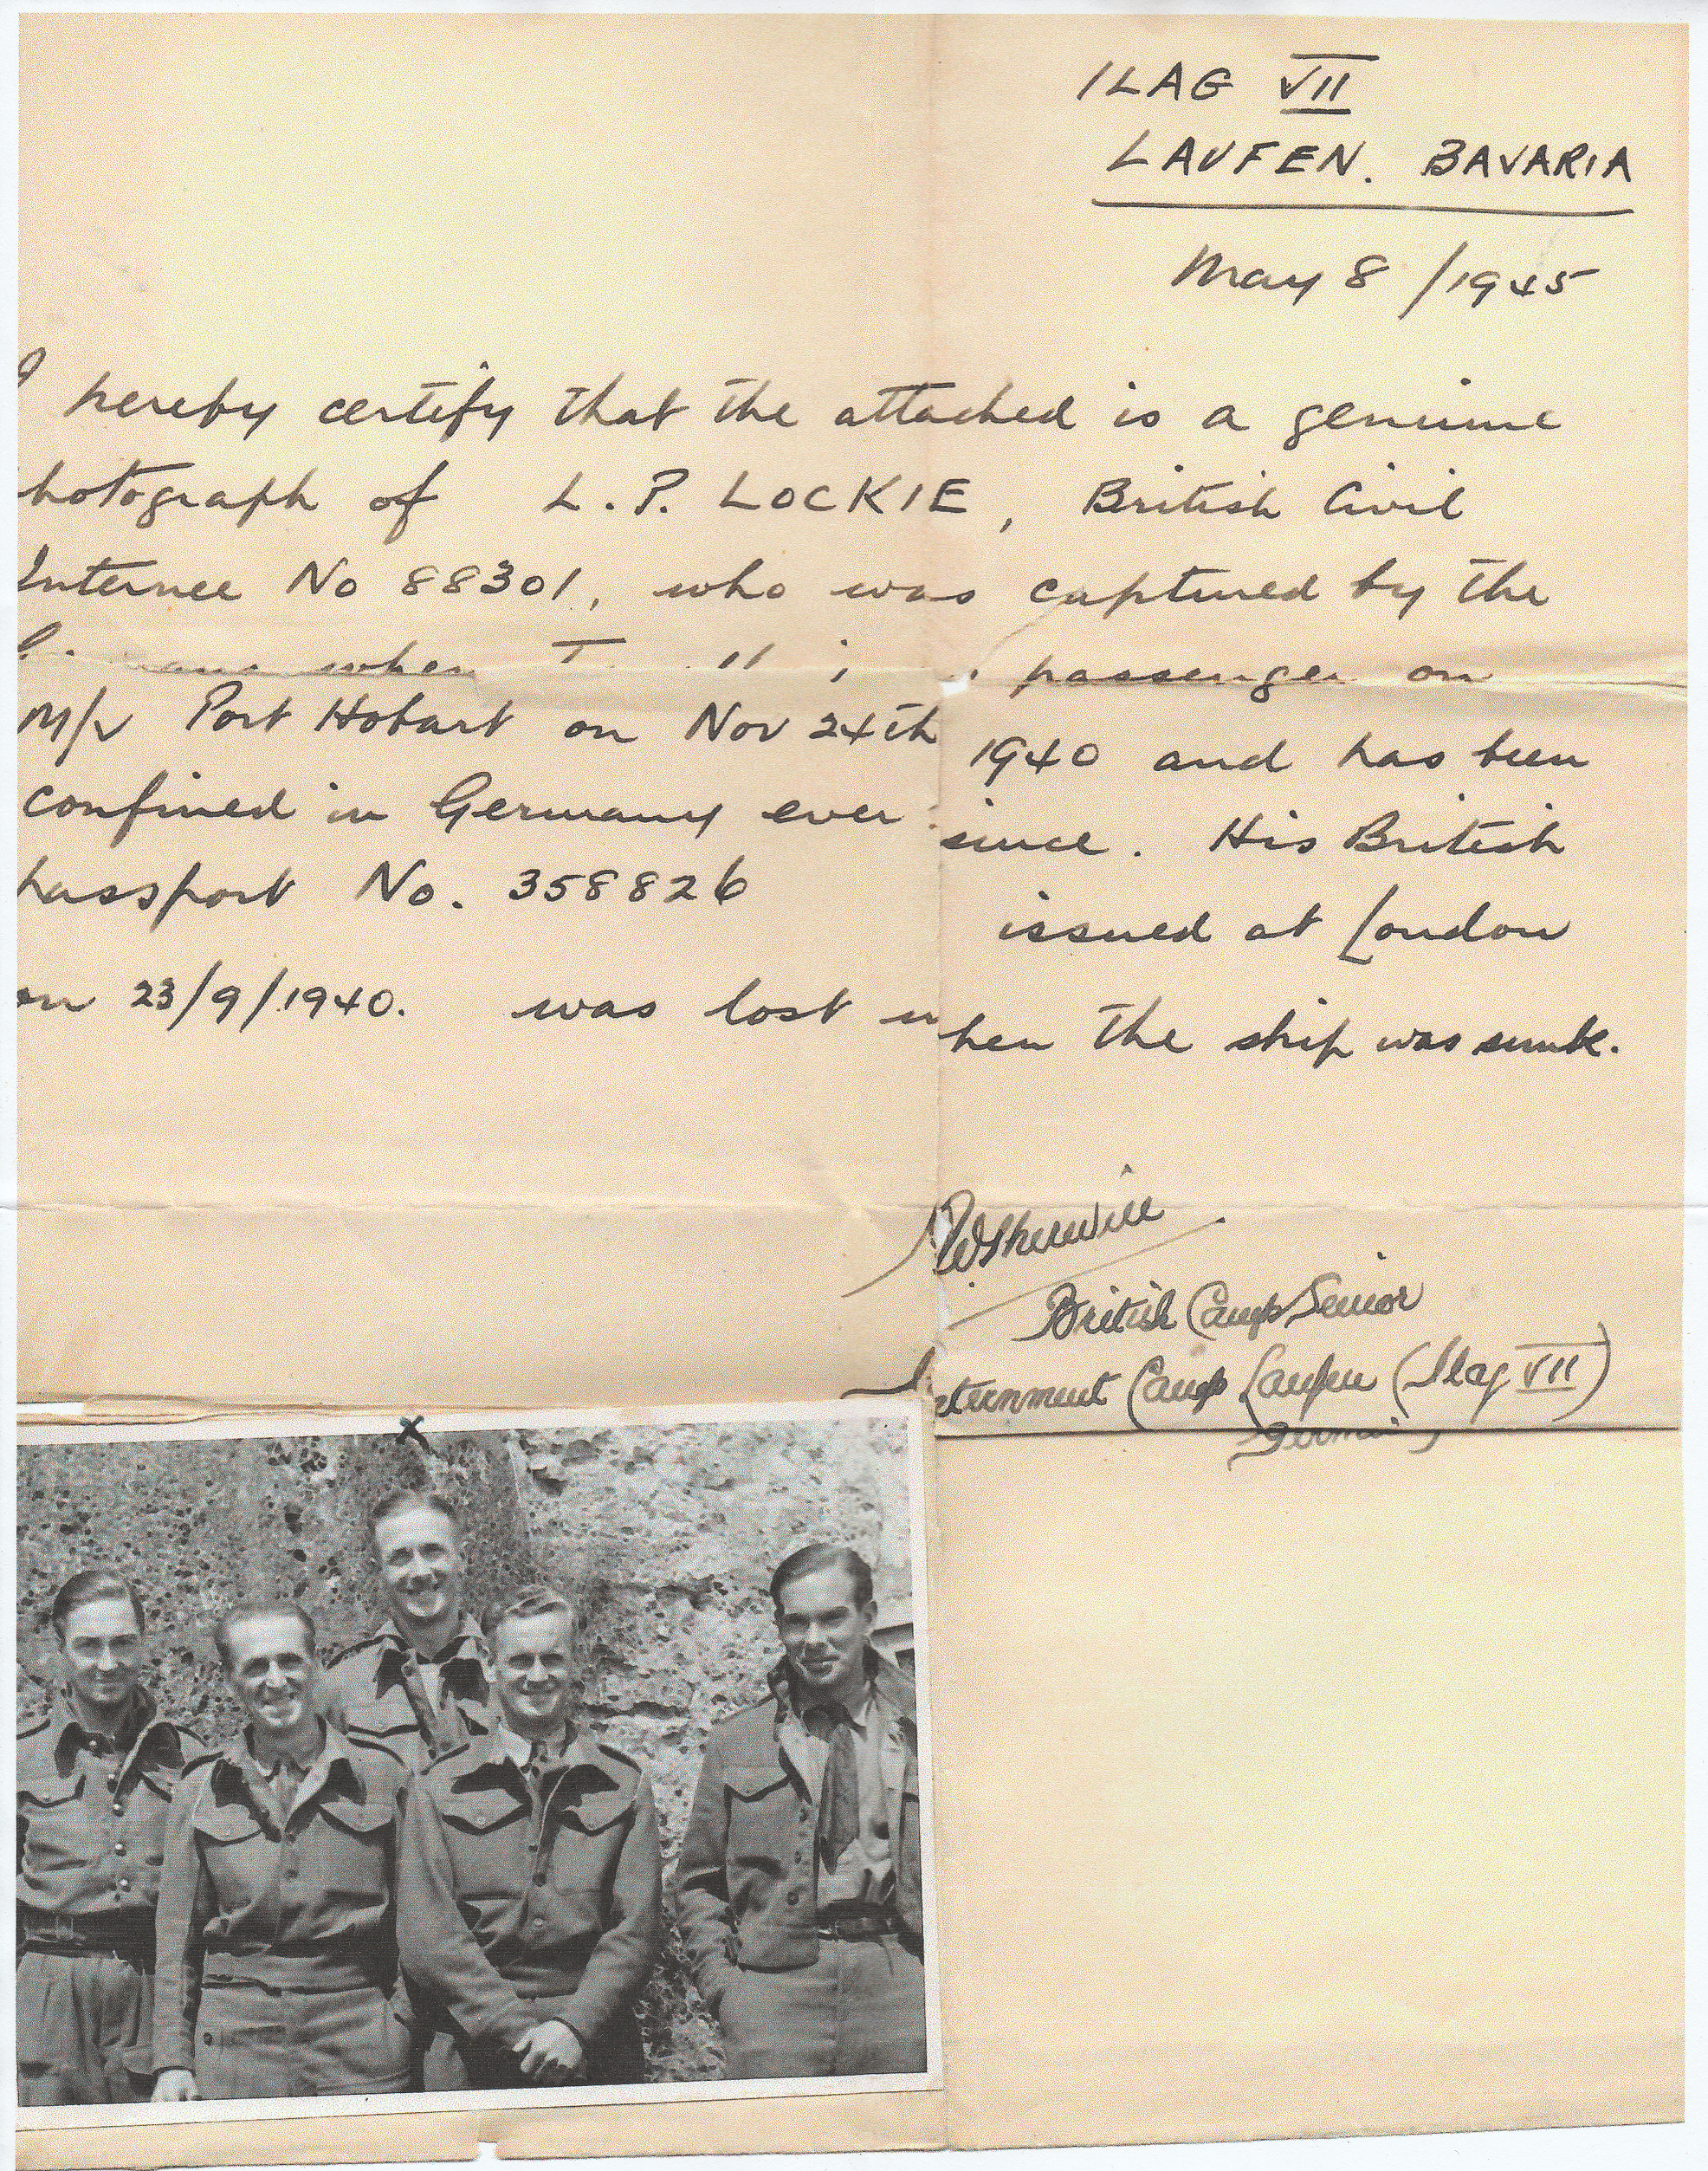 ILAG VII
LAUFEN. BAVARIA
May 8/1945
I hereby certify that the attached is a genuine
hotograph of L.P. LOCKIE, British Civil
Internee No 88301, who was captured by the
when passenger on
M/V Port Hobart on Nov 24th 1940 and has been
confined in Germany ever since. His British
passport No. 358826 issued at London
on 23/9/1940. was lost when the ship was sunk.
Sherwill
British Camp Senior
Internment Camp Laufen (Ilag VII)
X